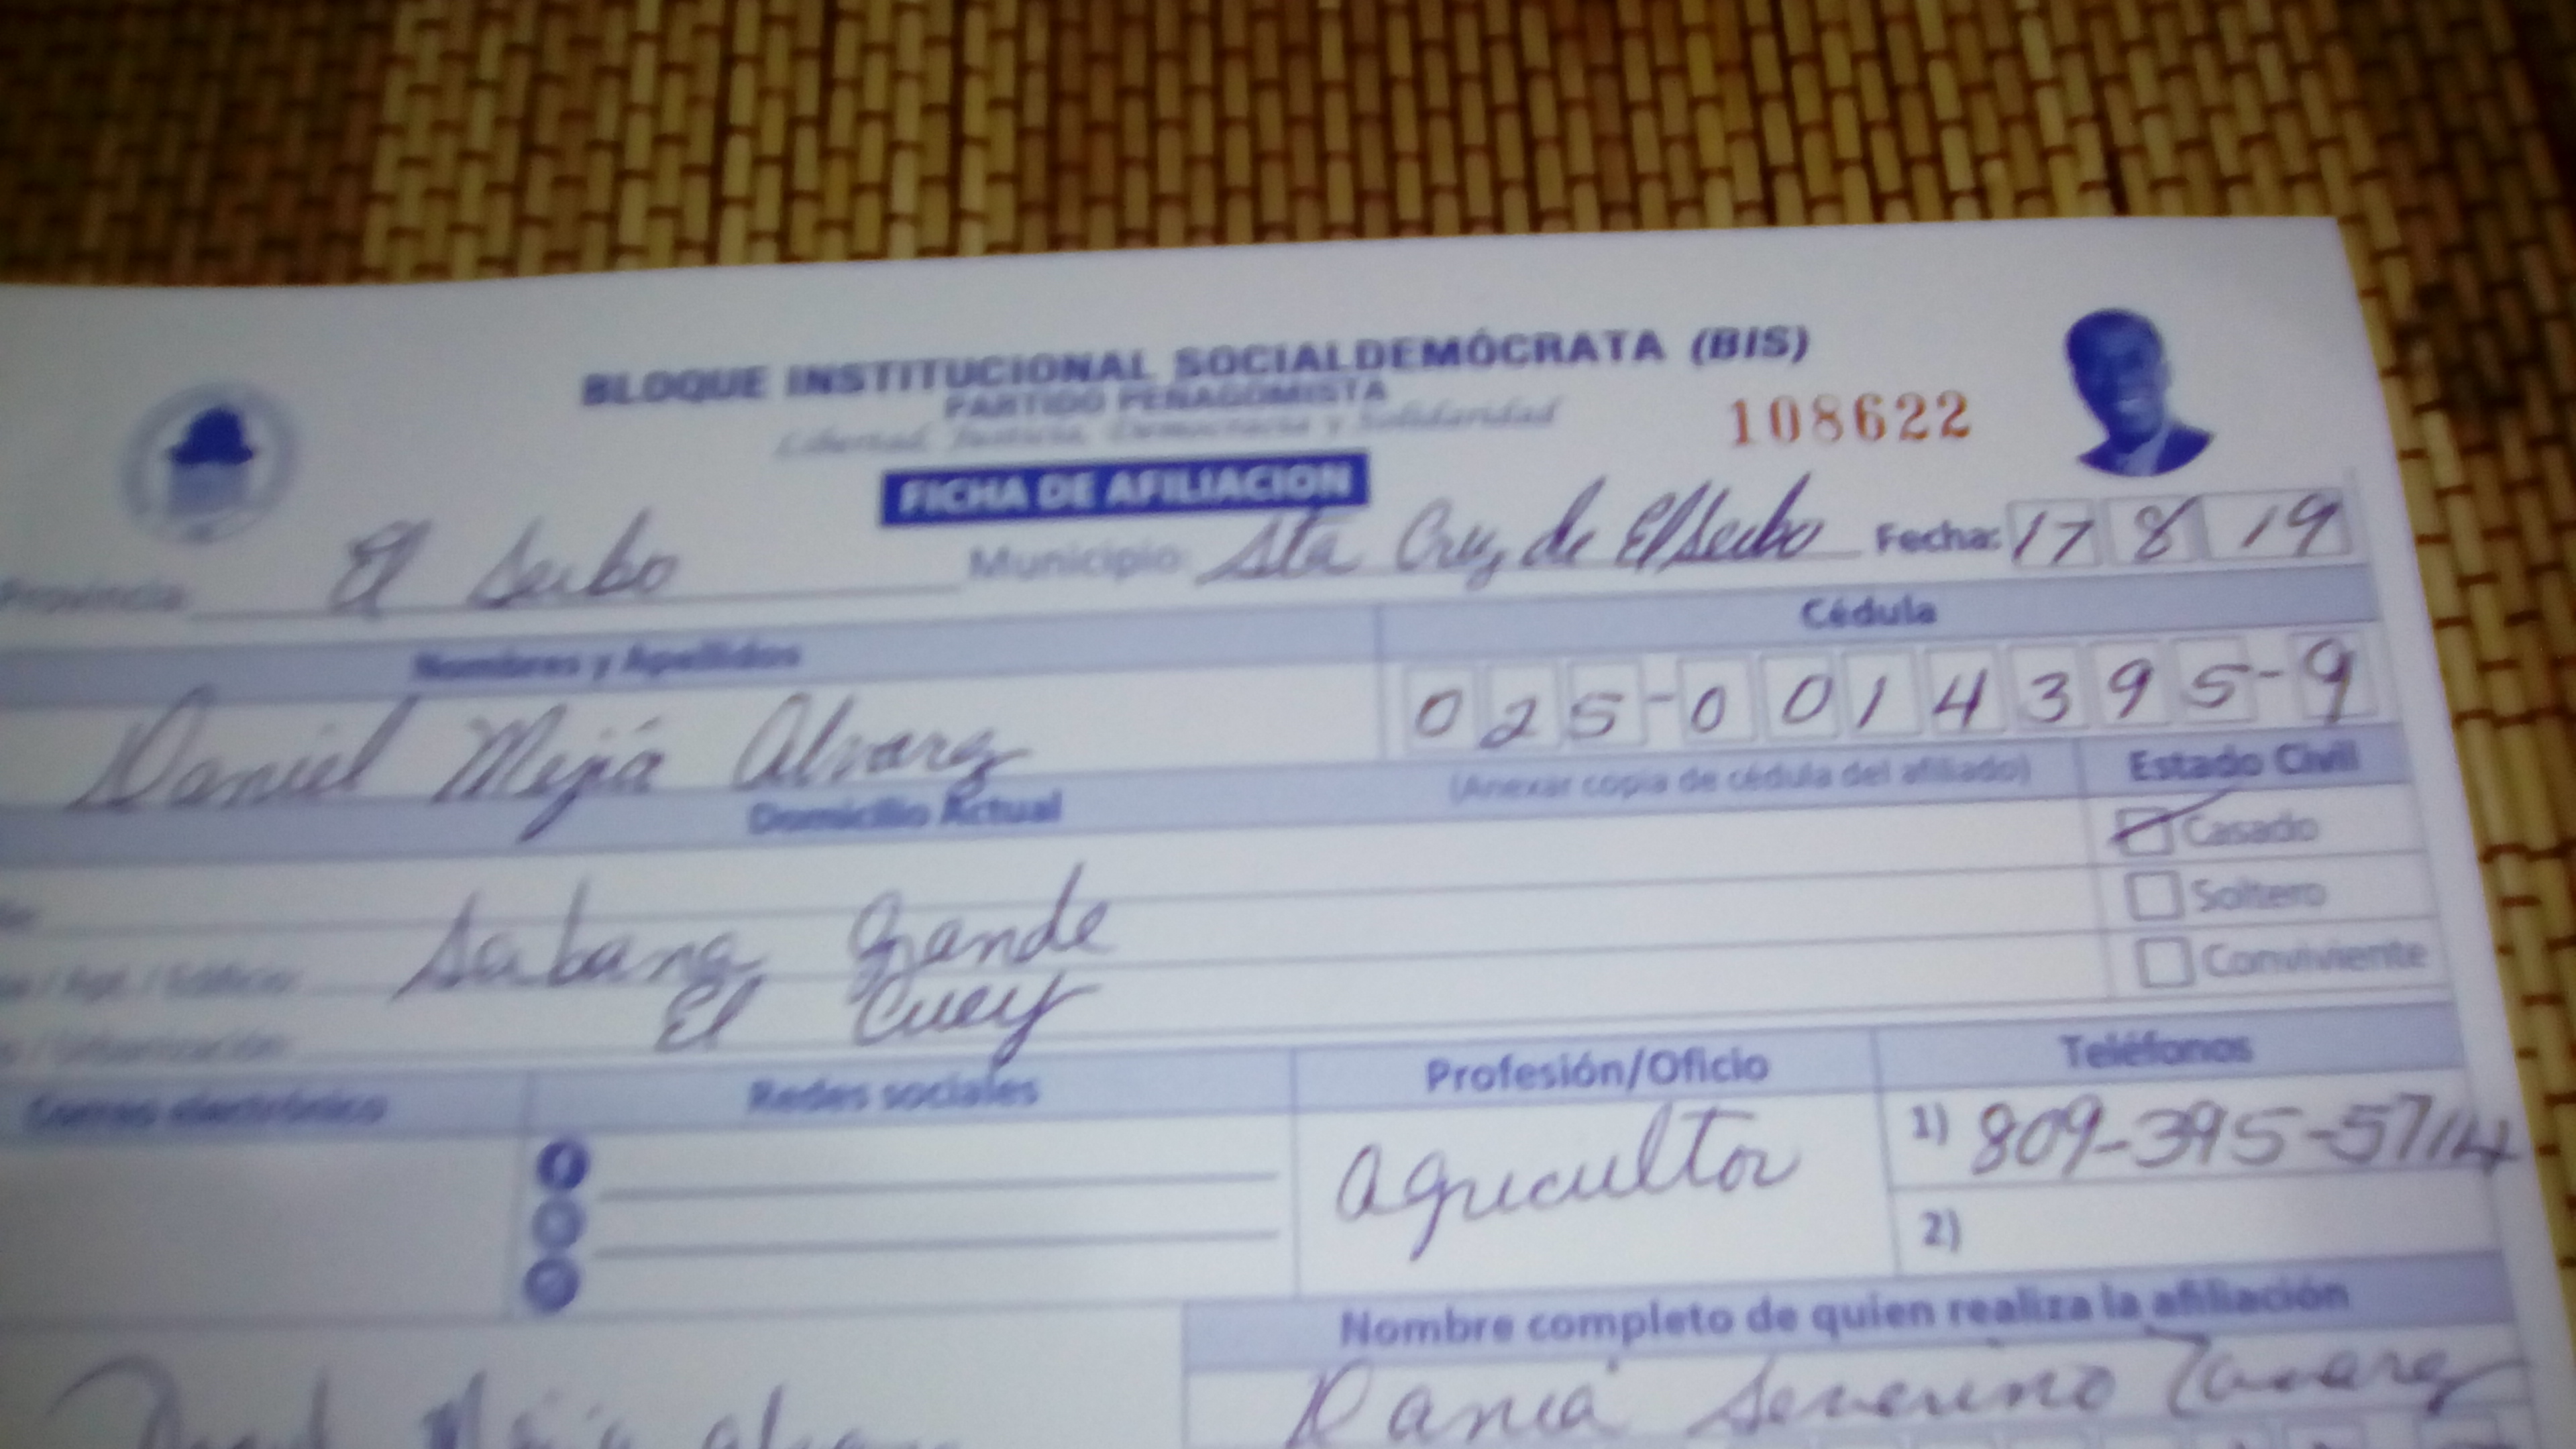 BLOQUE INSTITUCIONAL SOCIALDEMÓCRATA (BIS)
PARTIDO PEÑAGOMISTA
Libertad, Justicia, Democracia y Solidaridad
108622
FICHA DE AFILIACION
Provincia El Seibo Municipio: Sta Cruz de El Seibo Fecha: 17 8 19
Nombres y Apellidos Cédula
Daniel Mejiá Alvarez 025-0014395-9
(Anexar copia de cédula del afiliado) Estado Civil
Domicilio Actual
Casado
Soltero
Sabana Grande
/ Apt. / Edificio
Conviviente
El Cuey
/ Urbanización
Correo electrónico Redes sociales Profesión/Oficio Teléfonos
agricultor 1) 809-395-5714
2)
Nombre completo de quien realiza la afiliación
Dania Severino Tavarez